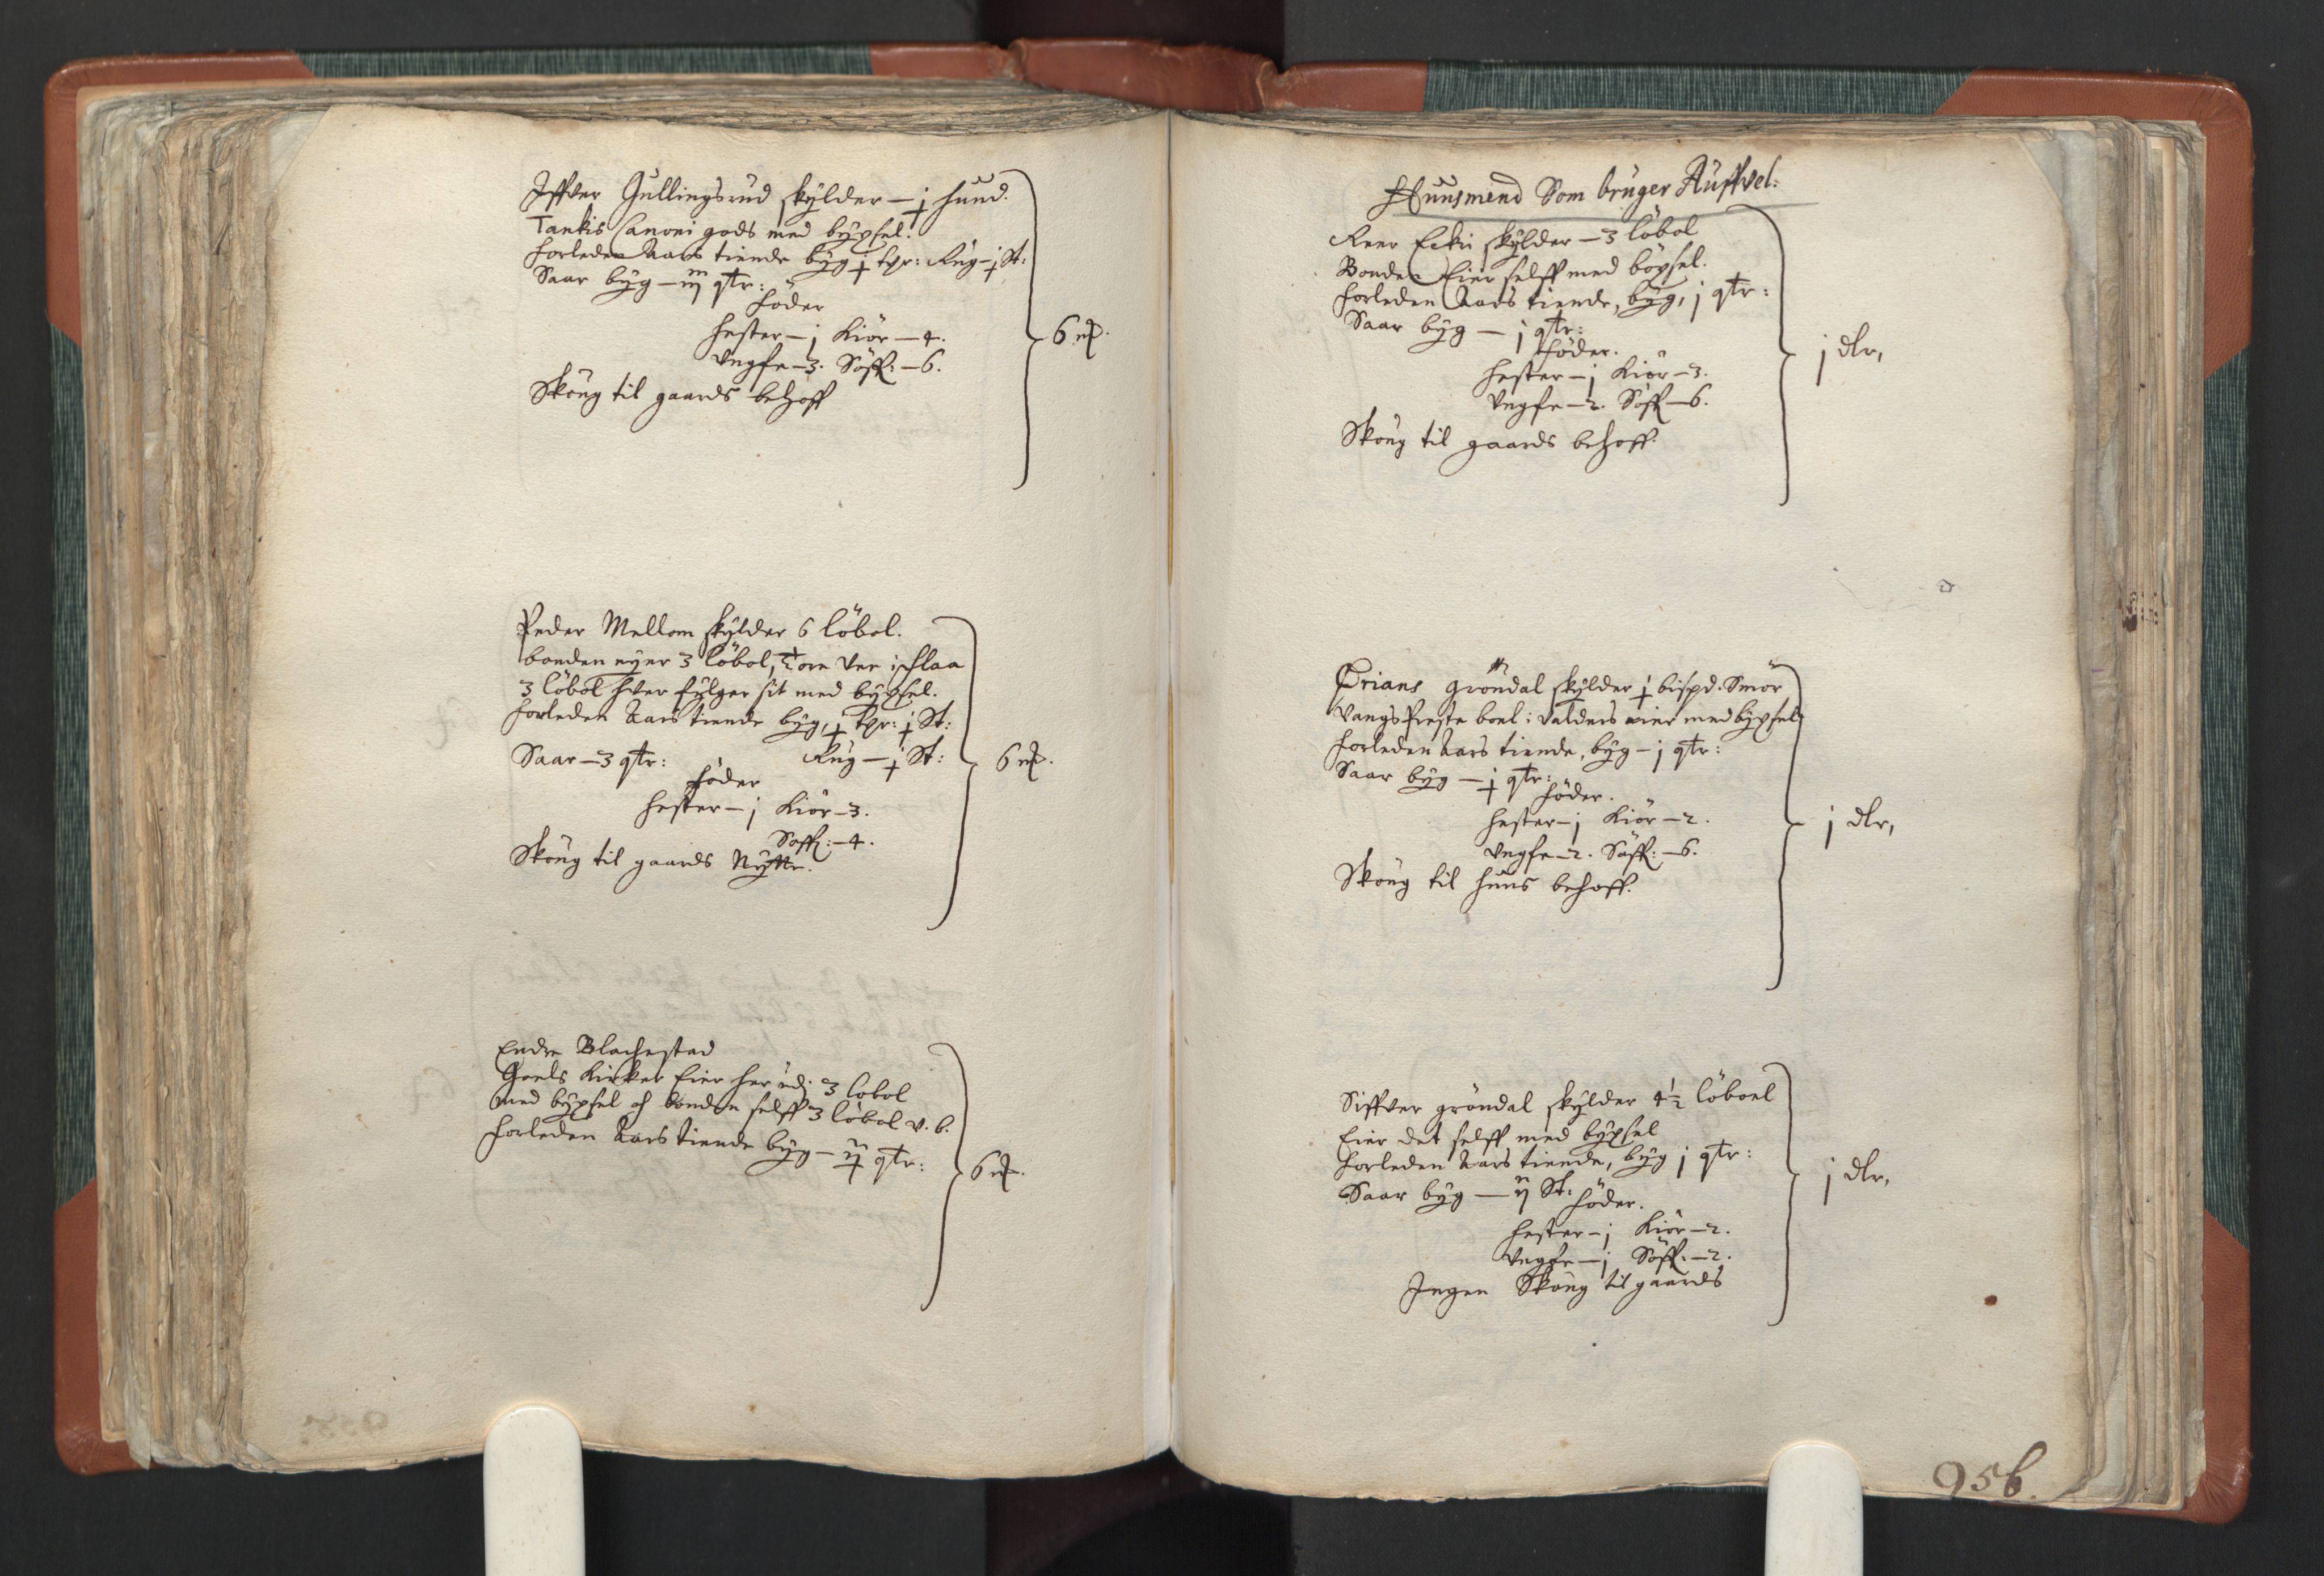 Iffver Gullingsrud skylder — j huud.
Tankis Canoni gods med bygsel.
forleden Aars tiende byg j tpr: Rug — j St:
Saar byg — iij qtr:
föder
hester — j Kiör — 4.
Ungfe — 3. Söff: — 6.
Skoug til gaards behoff
6 ꝶ.
Peder Mellom skylder 6 löbol.
bonden eyer 3 löbol, Tore Ver i flaa
3 löbol hver fylger sit med bygsel.
forleden Aars tiende byg, j tpr: j St:
Saar — 3 qtr: Rug — j St:
föder
hester — j Kiör — 3.
Soff: — 4.
Skoug til gaards Nytte.
6 ꝶ.
Endre Blachestad
Goels Kirker Eier her udj 3 lobol
med bygsel och bonden selff 3 löbol v. b.
forleden Aars tiende byg — ij qtr:
6 ꝶ.
Huusmend Som bruger Auffvel:
Reer Ecki skylder — 3 löbol
Bonden Eier selff med böxsel.
forleden Aars tiende, byg, j qtr:
Saar byg — j qtr:
föder.
hester — j Kiör — 3.
Ungfe — 2. Söff — 6.
Skoug til gaards behoff.
j dlr,
Örians gröndal skylder j bispd. Smör
Vangs Preste boel i Valders eier med bygsel
forleden Aars tiende, byg — j qtr:
Saar byg — j qtr:
föder.
hester — j Kiör — 2.
Ungfe — 2. Söff: — 6.
Skoug til huus behoff.
j dlr,
Siffver gröndal skylder 4½ löboel
Eier det selff med bygsel
forleden Aars tiende, byg j qtr:
Saar byg — ij St:
föder.
hester — j Kiör — 2.
Ungfe — j Söff: — 2.
Ingen Skoug til gaards
j dlr,
956.